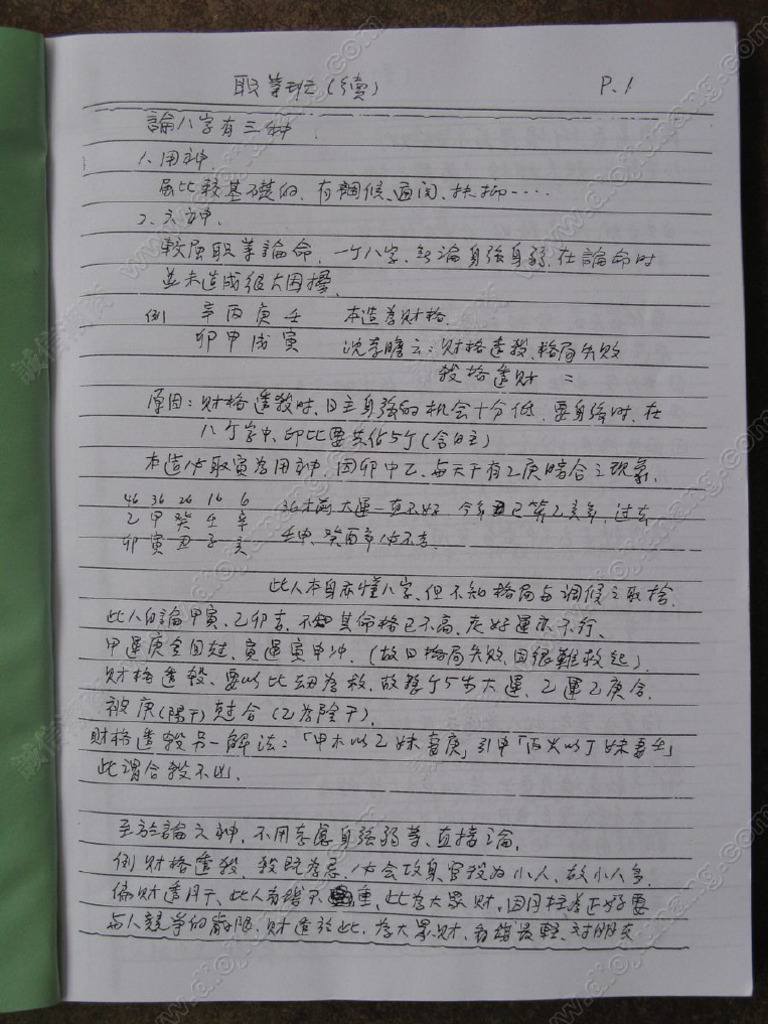 职業班(續) P.1
論八字有三种
1、用神.
屬比較基礎的,有調候、通関、扶抑……
2、六神.
較屬职業論命,一个八字,勿論身強身弱,在論命时
並未造成很大困擾.
例 辛丙庚壬 本造為财格.
卯甲戌寅 沈孝瞻云:财格逢殺,格局失败
殺格逢财 =
原因:财格逢殺时,日主身強的机会十分低,要身強时,在
八个字中,印比要共佔5个(含日主)
本造必取寅為用神,因卯中乙,每天干有乙庚暗合之現象.
46 36 26 16 6 36未満大運一直不好,今年丑已等乙亥年,过去
乙甲癸壬辛 壬申、癸酉年必不吉.
卯寅丑子亥
此人本身亦懂八字,但不知格局与調候之取捨.
此人自論甲寅、乙卯吉,不知其命格已不高,走好運亦不行、
甲運庚金回尅,寅運寅申冲.(故曰格局失败,因很難救起).
财格逢殺、要以比劫為救,故整个5步大運,乙運乙庚合,
被庚(陽干)尅合(乙為陰干).
财格逢殺另一解法:「甲木以乙妹妻庚」引申「丙火以丁妹妻壬」
此謂合殺不凶.
至於論六神,不用考慮身強弱等、直接论.
例财格逢殺,殺既為忌,必会攻身,官殺為小人,故小人多.
偏财透月干、此人有錢不重,此為大眾财,因月柱為正好要
与人競爭的齡限,财透於此,為大眾财,看錢最輕,对朋友